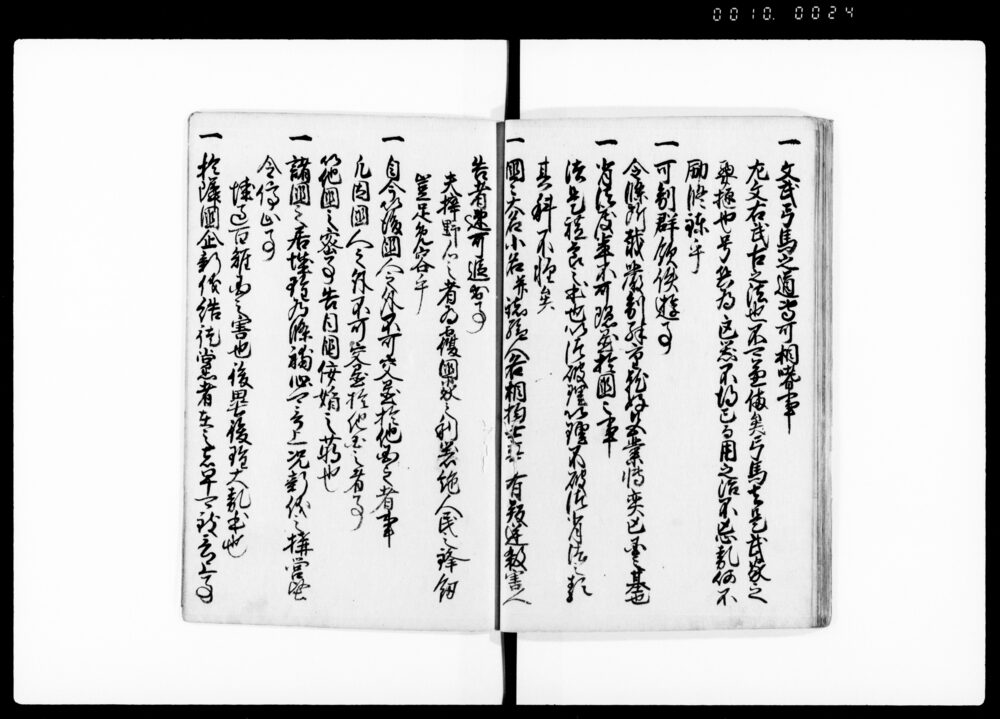 0010. 0024
一 文武弓馬之道専可相嗜事
左文右武古之法也不可不兼備矣弓馬者是武家之
要枢也号兵為凶器不得已而用之治不忘乱何不
励修錬乎
一 可制群飲佚遊事
令條所載厳制殊重耽好色業博奕是亡国之基也
一 背法度輩不可隠置於国々事
法是礼節之本也以法破理以理不破法背法之類
其科不軽矣
一 国之大名小名并諸給人各相抱士卒有叛逆殺害人
告者速可追出事
夫挟野心之者為覆国家之利器絶人民之鋒釼
豈足允容乎
一 自今以後国人之外不可交置於他国之者事
凡因国人之外不可交置於他国之者事
以他国之密事告自国佞媚之萌也
一 諸国之居城雖為修補必可言上況新儀之搆営堅
令停止事
城過百雉国之害也峻塁浚隍大乱本也
一 於隣国企新儀結徒党者在之者早可致言上事